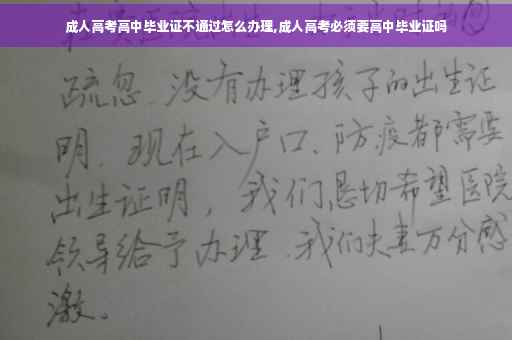 成人高考高中毕业证不通过怎么办理,成人高考必须要高中毕业证吗
疏忽、没有办理孩子的出生证
明、现在入户口、防疫都需要
出生证明，我们恳切希望医院
领导给予办理、我们夫妻万分感
激。